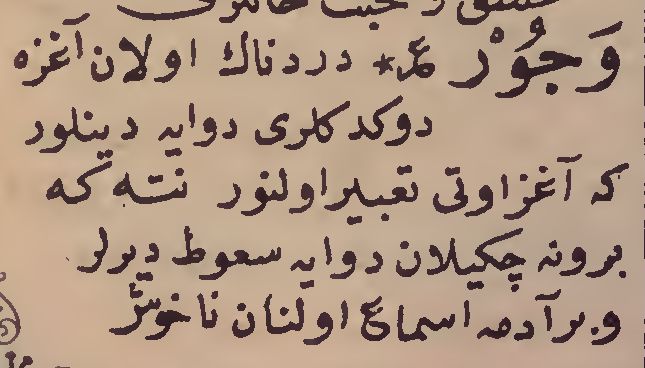 وَجُورْ ع * دردناك اولان آغزه
دوكدكلری دوایه دینلور
كه آغز اوتی تعبیر اولنور نته كه
برونه چكیلان دوایه سعوط دیرلر
و بر آدمه اسماع اولنان ناخوش